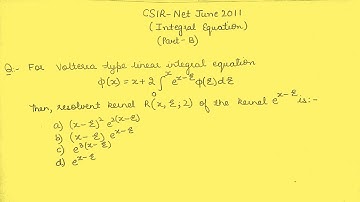 CSIR-Net June 2011
(Integral Equation)
(Part-B)
Q:- For Volterra type linear integral equation
ϕ(x) = x + 2 ∫₀ˣ e^(x-ξ) ϕ(ξ) dξ
Then, resolvent kernel R(x, ξ; 2) of the kernel e^(x-ξ) is:-
a) (x-ξ)² e^(2(x-ξ))
b) (x-ξ) e^(x-ξ)
c) e^(3(x-ξ))
d) e^(x-ξ)